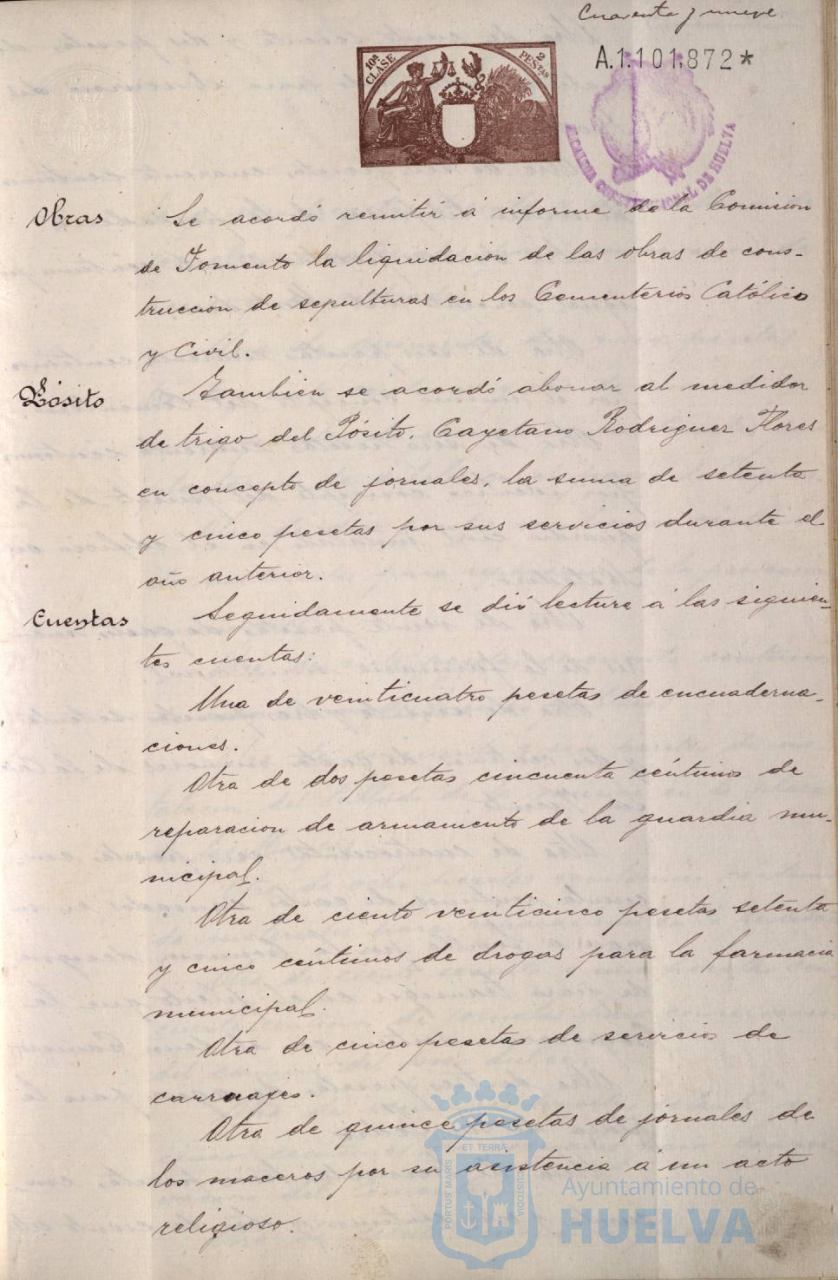 Cuarenta y nueve
10ª CLASE
2 PESETAS
A.1.101,872*
ALCALDIA CONSTITUCIONAL DE HUELVA
Obras
Se acordó remitir á informe de la Comisión
de Fomento la liquidación de las obras de cons-
trucción de sepulturas en los Cementerios Católico
y Civil.
Pósito
Tambien se acordó abonar al medidor
de trigo del Pósito, Cayetano Rodriguez Flores
en concepto de jornales, la suma de setenta
y cinco pesetas por sus servicios durante el
año anterior.
Cuentas
Seguidamente se dió lectura á las siguien-
tes cuentas:
Una de veinticuatro pesetas de encuaderna-
ciones.
Otra de dos pesetas cincuenta céntimos de
reparacion de armamento de la guardia mu-
nicipal.
Otra de ciento veinticinco pesetas setenta
y cinco céntimos de drogas para la farmacia
municipal.
Otra de cinco pesetas de servicio de
carruajes.
Otra de quince pesetas de jornales de
los maceros por su asistencia á un acto
religioso.
PORTUS MARIS ET TERRÆ CUSTODIA
Ayuntamiento de
HUELVA